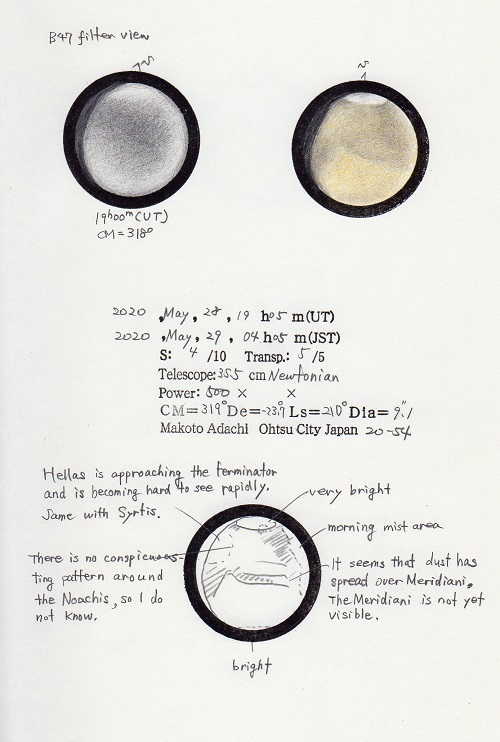 B47 filter view
S
S
19h00m(UT)
CM=318°
2020 ,May, 28, 19 h05 m(UT)
2020 ,May, 29, 04 h05 m(JST)
S: 4 /10 Transp.: 5 /5
Telescope:355 cm Newtonian
Power: 500 × ×
CM=319°De=-23.7Ls=210°Dia=9."1
Makoto Adachi Ohtsu City Japan 20-54
Hellas is approaching the terminator
and is becoming hard to see rapidly.
Same with Syrtis.
very bright
morning mist area
There is no conspicuous-
ting pattern around
the Noachis, so I do
not know.
It seems that dust has
spread over Meridiani,
The Meridiani is not yet
visible.
bright